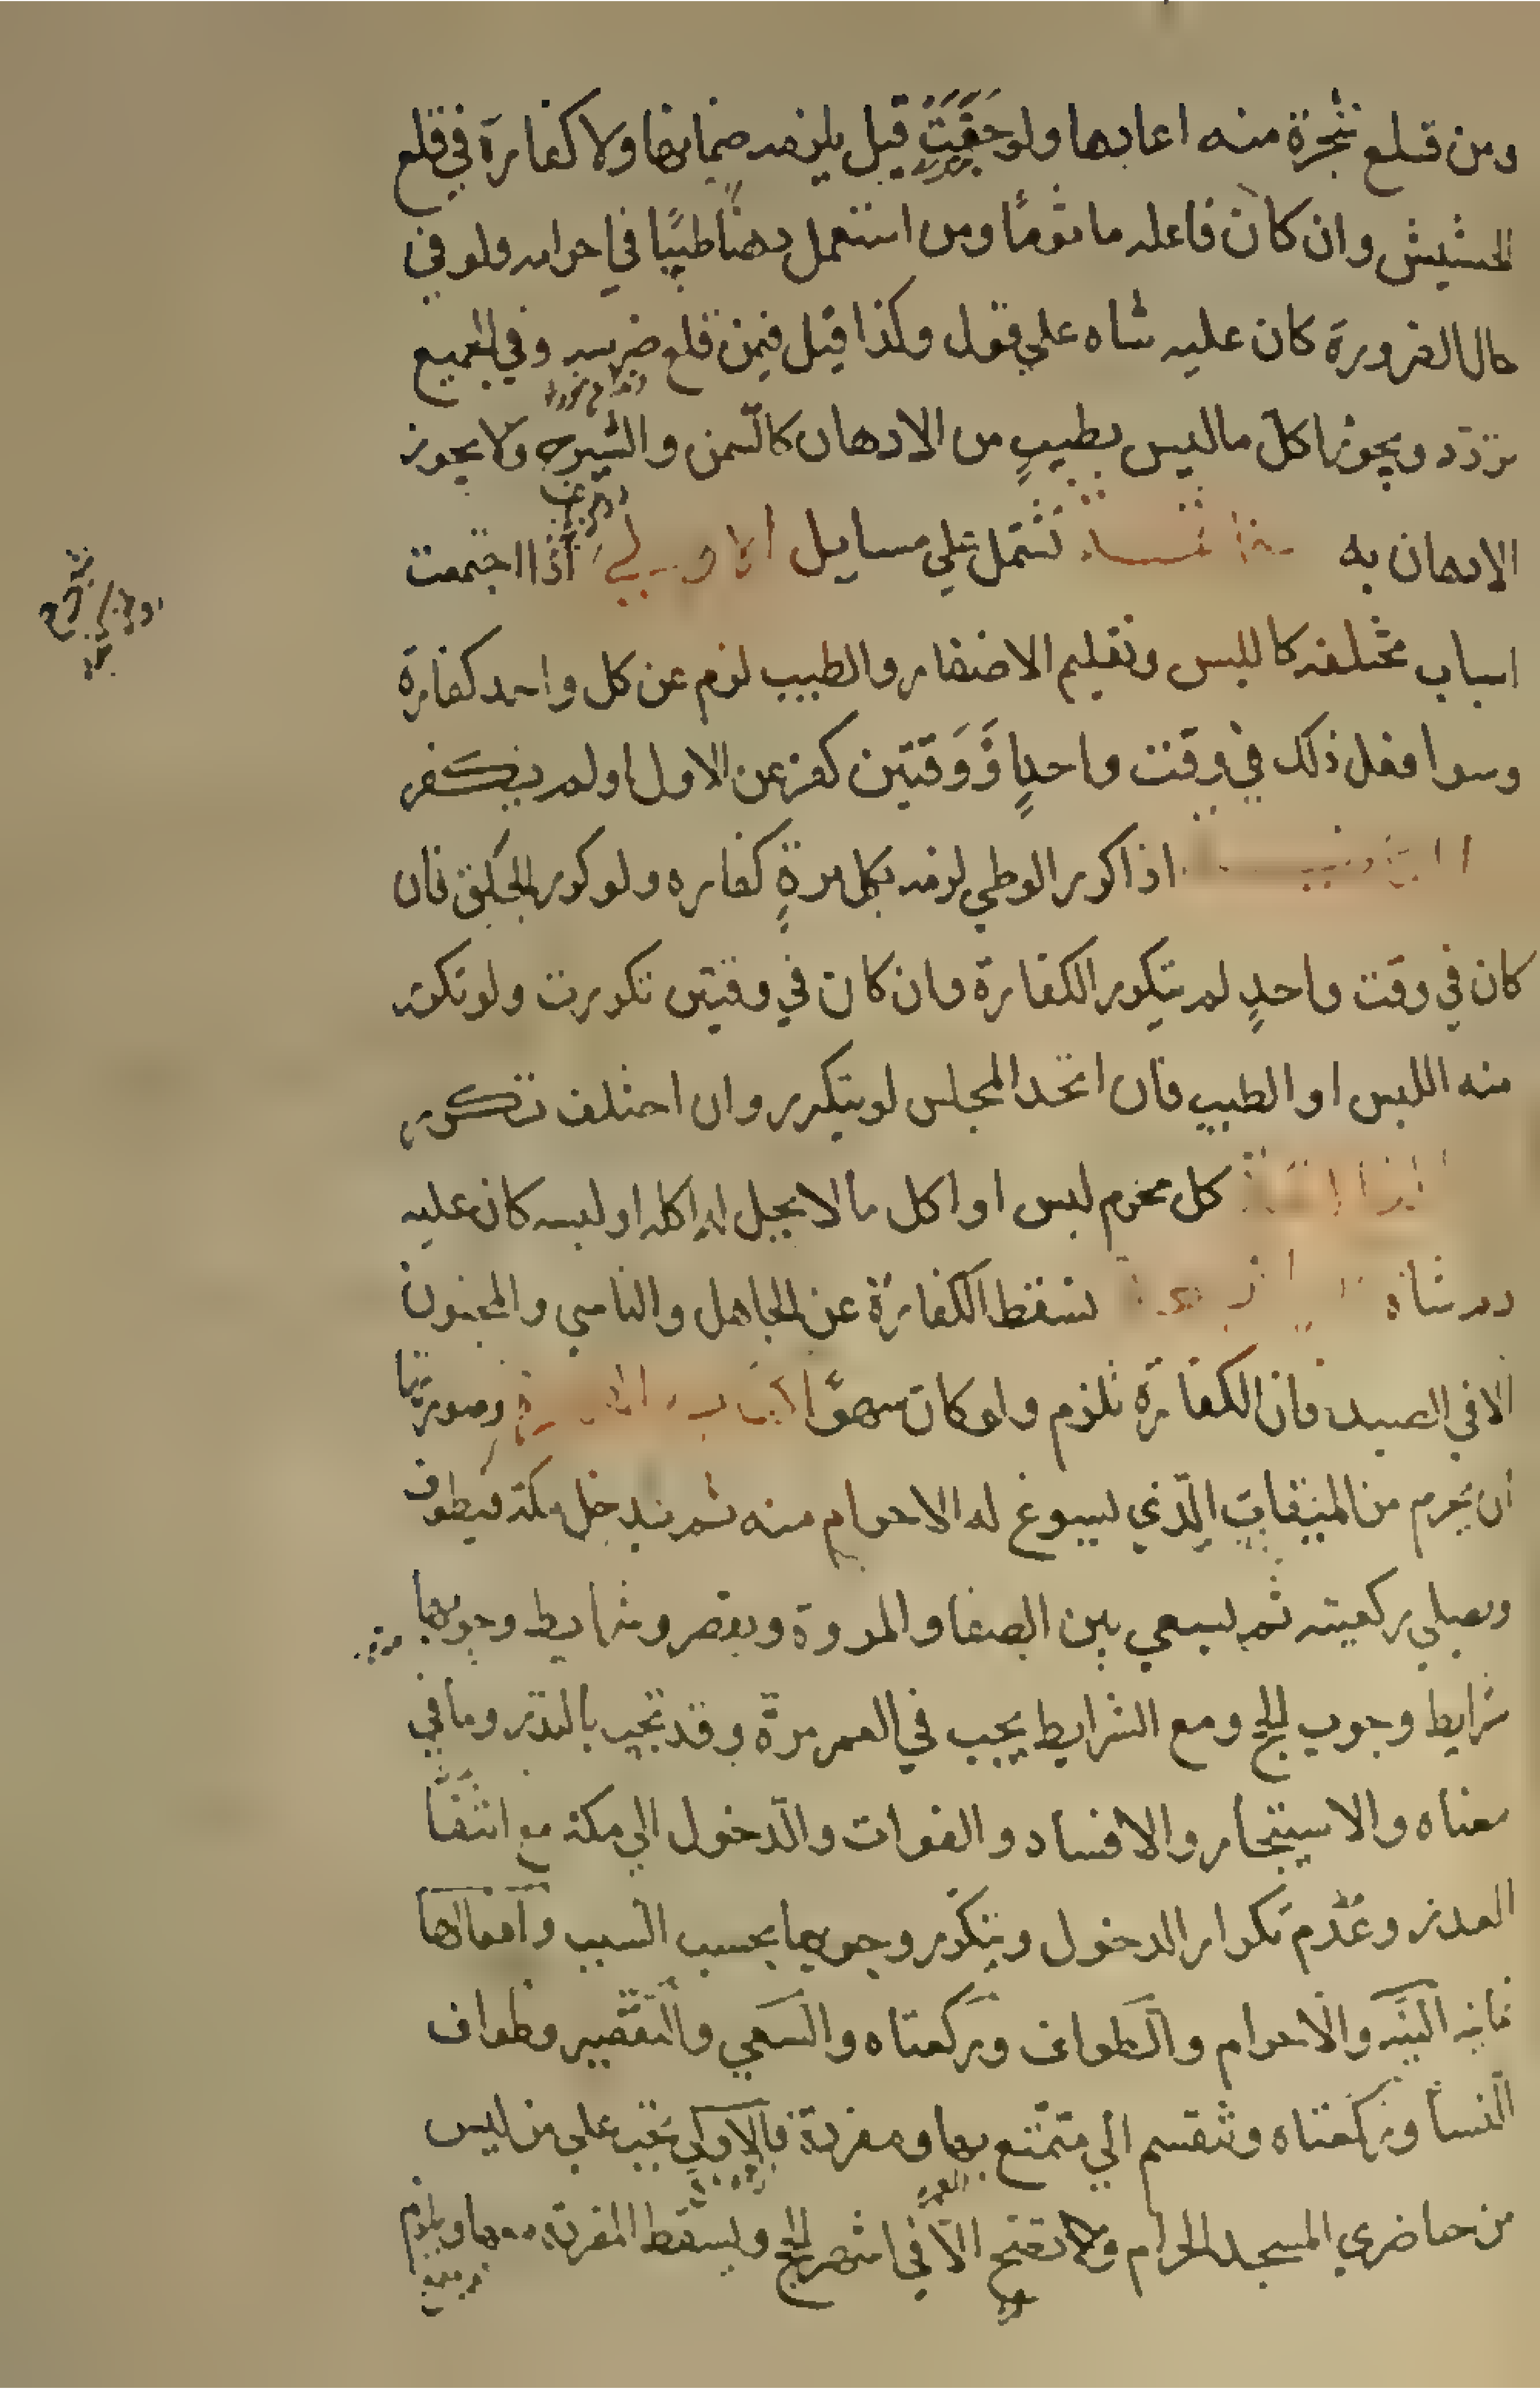 ومن قلع شجرة منه اعادها ولو جفّت قيل يلزمه ضمانها ولا كفارة في قلع
الحشيش وان كان فاعله ماثومًا ومن استعمل دهنًا طيبًا في احرامه ولو في
حال الضرورة كان عليه شاه على قول وكذا قيل فيمن قلع ضرسه وفي الجميع
تردّد ويجوز اكل ما ليس بطيبٍ من الادهان كالسّمن والشّيرج ولا يجوز
الادهان به خاتمة تشتمل على مسايل الاولى اذا اجتمعت
اسباب مختلفه كاللبس وتقليم الاضفار والطيب لزم عن كل واحد كفارة
وسوا فعل ذلك في وقت واحدٍ او وقتين كفر عن الاول او لم يكفر
الثانية اذا كرر الوطي لزمه بكل مرةٍ كفاره ولو كرر الحلق فان
كان في وقت واحدٍ لم يتكرر الكفارة وان كان في وقتين تكررت ولو تكرر
منه اللبس او الطيب فان اتحد المجلس لم يتكرر وان اختلف تكرر
الثالثة كل محرم لبس او اكل ما لا يحل له اكله او لبسه كان عليه
دم شاة الرابعة تسقط الكفارة عن الجاهل والناسي والمجنون
الا في الصيد فان الكفارة تلزم ولو كان سهوًا كتاب العمرة وصورتها
ان يحرم من الميقات الّذي يسوغ له الاحرام منه ثم يدخل مكة فيطوف
ويصلي ركعيته ثم يسعي بين الصفا والمروة ويقصر وشرايط وجوبها
شرايط وجوب الحج ومع الشرايط يجب في العمر مرّة وقد تجب بالنذر وما في
معناه والاستيجار والافساد والفوات والدّخول الي مكة مع انتفا
العذر وعدم تكرار الدخول ويتكرّر وجوبها بحسب السبب وافعالها
ثمانيه النيّه والاحرام والطواف وركعتاه والسعي والتقصير وطواف
النسا وركعتاه وتنقسم الي متمتع بها ومفردة فالاولى تجب على من ليس
من حاضري المسجد الحرام ولا تصح الّا في اشهر الحج ويسقط المفردة معها ويلزم